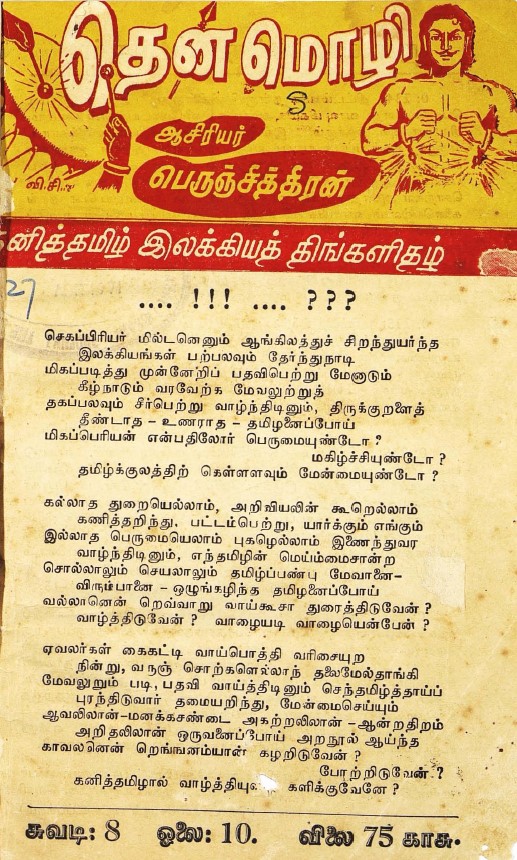 தென் மொழி
ஆசிரியர்
பெருஞ்சித்திரன்
வி.சி.
னித்தமிழ் இலக்கியத் திங்களிதழ்
27
.... !!! .... ???
செகப்பிரியர் மில்டனெனும் ஆங்கிலத்துச் சிறந்துயர்ந்த
இலக்கியங்கள் பற்பலவும் தேர்ந்துநாடி
மிகப்படித்து முன்னேறிப் பதவிபெற்று மேனாடும்
கீழ்நாடும் வரவேற்க மேவலுற்றுத்
தகப்பலவும் சீர்பெற்று வாழ்ந்திடினும், திருக்குறளைத்
தீண்டாத - உணராத - தமிழனைப்போய்
மிகப்பெரியன் என்பதிலோர் பெருமையுண்டோ ?
மகிழ்ச்சியுண்டோ ?
தமிழ்க்குலத்திற் கெள்ளளவும் மேன்மையுண்டோ ?
கல்லாத துறையெல்லாம், அறிவியலின் கூறெல்லாம்
கணித்தறிந்து. பட்டம்பெற்று, யார்க்கும் எங்கும்
இல்லாத பெருமையெலாம் புகழெல்லாம் இணைந்துவர
வாழ்ந்திடினும், எந்தமிழின் மெய்ம்மைசான்ற
சொல்லாலும் செயலாலும் தமிழ்ப்பண்பு மேவானை-
விரும்பானை - ஒழுங்கழிந்த தமிழனைப்போய்
வல்லானென் றெவ்வாறு வாய்கூசா துரைத்திடுவேன் ?
வாழ்த்திடுவேன் ? வாழையடி வாழையென்பேன் ?
ஏவலர்கள் கைகட்டி வாய்பொத்தி வரிசையுற
நின்று, வருஞ் சொற்களெல்லாந் தலைமேல்தாங்கி
மேவலுறும் படி, பதவி வாய்த்திடினும் செந்தமிழ்த்தாய்ப்
புரந்திடுவார் தமையறிந்து, மேன்மைசெய்யும்
ஆவலிலான்-மனக்கசண்டை அகற்றலிலான் -ஆன்றதிறம்
அறிதலிலான் ஒருவனைப்போய் அறநூல் ஆய்ந்த
காவலனென் றெங்ஙனம்யான் கழறிடுவேன் ?
போற்றிடுவேன் ?
கனித்தமிழால் வாழ்த்தியு களிக்குவேனே ?
சுவடி: 8 ஓலை: 10. விலை 75 காசு.